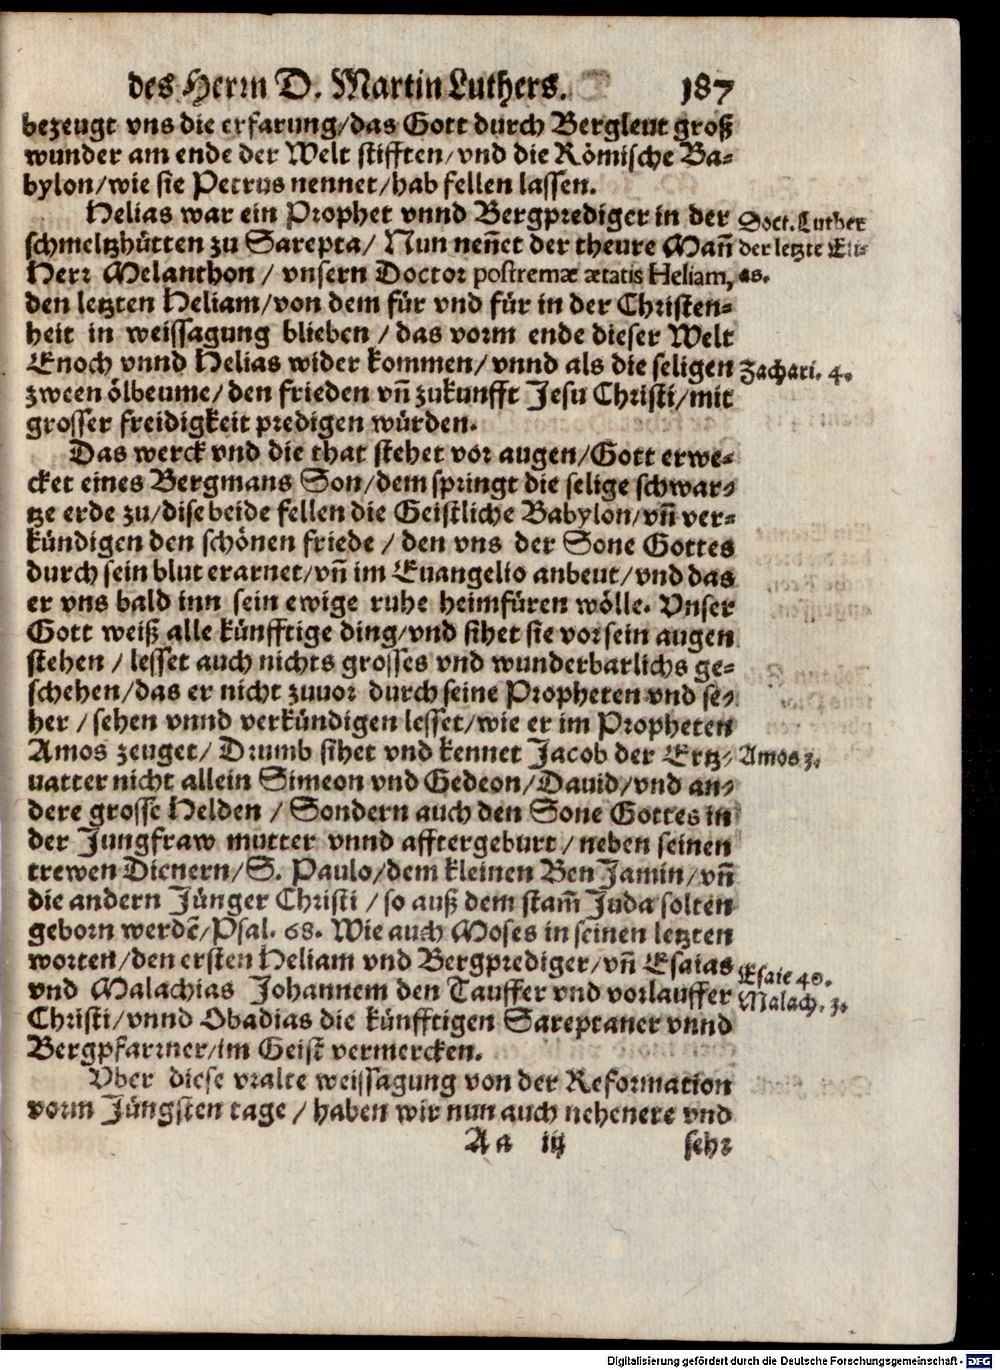 des Herrn D. Martin Luthers. 187
bezeugt vns die erfarung/das Gott durch Bergleut groß
wunder am ende der Welt stifften/vnd die Römische Ba-
bylon/wie sie Petrus nennet/hab fellen lassen.
Helias war ein Prophet vnnd Bergprediger in der
Doct. Luther
schmeltzhütten zu Sarepta/ Nun neñet der theure Mañ
der letzte Eli-
Herr Melanthon / vnsern Doctor postremæ ætatis Heliam,
as.
den letzten Heliam/von dem für vnd für in der Christen-
heit in weissagung blieben / das vorm ende dieser Welt
Enoch vnnd Helias wider kommen/vnnd als die seligen
Zachari. 4.
zween ölbeume/den frieden vñ zukunfft Jesu Christi/mit
grosser freidigkeit predigen würden.
Das werck vnd die that stehet vor augen/Gott erwe-
cket eines Bergmans Son/dem springt die selige schwar-
tze erde zu/dise beide fellen die Geistliche Babylon/vñ ver-
kündigen den schönen friede / den vns der Sone Gottes
durch sein blut erarnet/vñ im Euangelio anbeut/vnd das
er vns bald inn sein ewige ruhe heimfüren wölle. Vnser
Gott weiß alle künfftige ding/vnd sihet sie vor sein augen
stehen / lesset auch nichts grosses vnd wunderbarlichs ge-
schehen/das er nicht zuuor durch seine Propheten vnd se-
her / sehen vnnd verkündigen lesset/wie er im Propheten
Amos zeuget/ Drumb sihet vnd kennet Jacob der Ertz-
Amos 3.
uatter nicht allein Simeon vnd Gedeon/Dauid/vnd an-
dere grosse Helden / Sondern auch den Sone Gottes in
der Jungfraw mutter vnnd afftergeburt / neben seinen
trewen Dienern/S. Paulo/dem kleinen Ben Jamin/vñ
die andern Jünger Christi / so auß dem stam̃ Juda solten
geborn werdẽ/Psal. 68. Wie auch Moses in seinen letzten
worten/den ersten Heliam vnd Bergprediger/vñ Esaias
Esaie 40.
vnd Malachias Johannem den Tauffer vnd vorlauffer
Malach. 3.
Christi/vnnd Obadias die künfftigen Sareptaner vnnd
Bergpfarrner/im Geist vermercken.
Vber diese vralte weissagung von der Reformation
vorm Jüngsten tage / haben wir nun auch nehenere vnd
Aa iij sehr
Digitalisierung gefördert durch die Deutsche Forschungsgemeinschaft - DFG